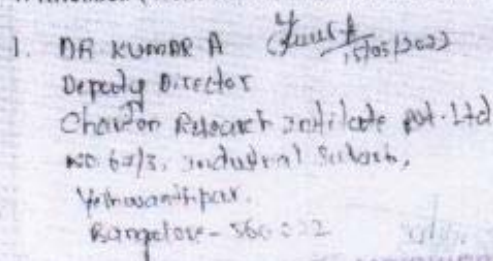 1. DR KUMAR A 15/05/2022
Deputy Director
Research Pvt. Ltd
NO. Industrial Suburb,
Yeshwanthpur.
Bangalore - 560022